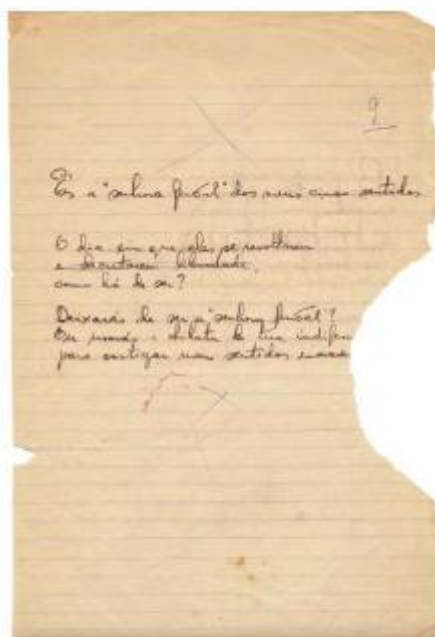 9
És a "senhora feudal" dos meus cinco sentidos
O dia em que eles se revoltarem
e decretarem liberdade,
como há de ser?
Deixarás de ser a "senhora feudal"?
Ou usarás a chibata da tua indifer
para castigar meus sentidos